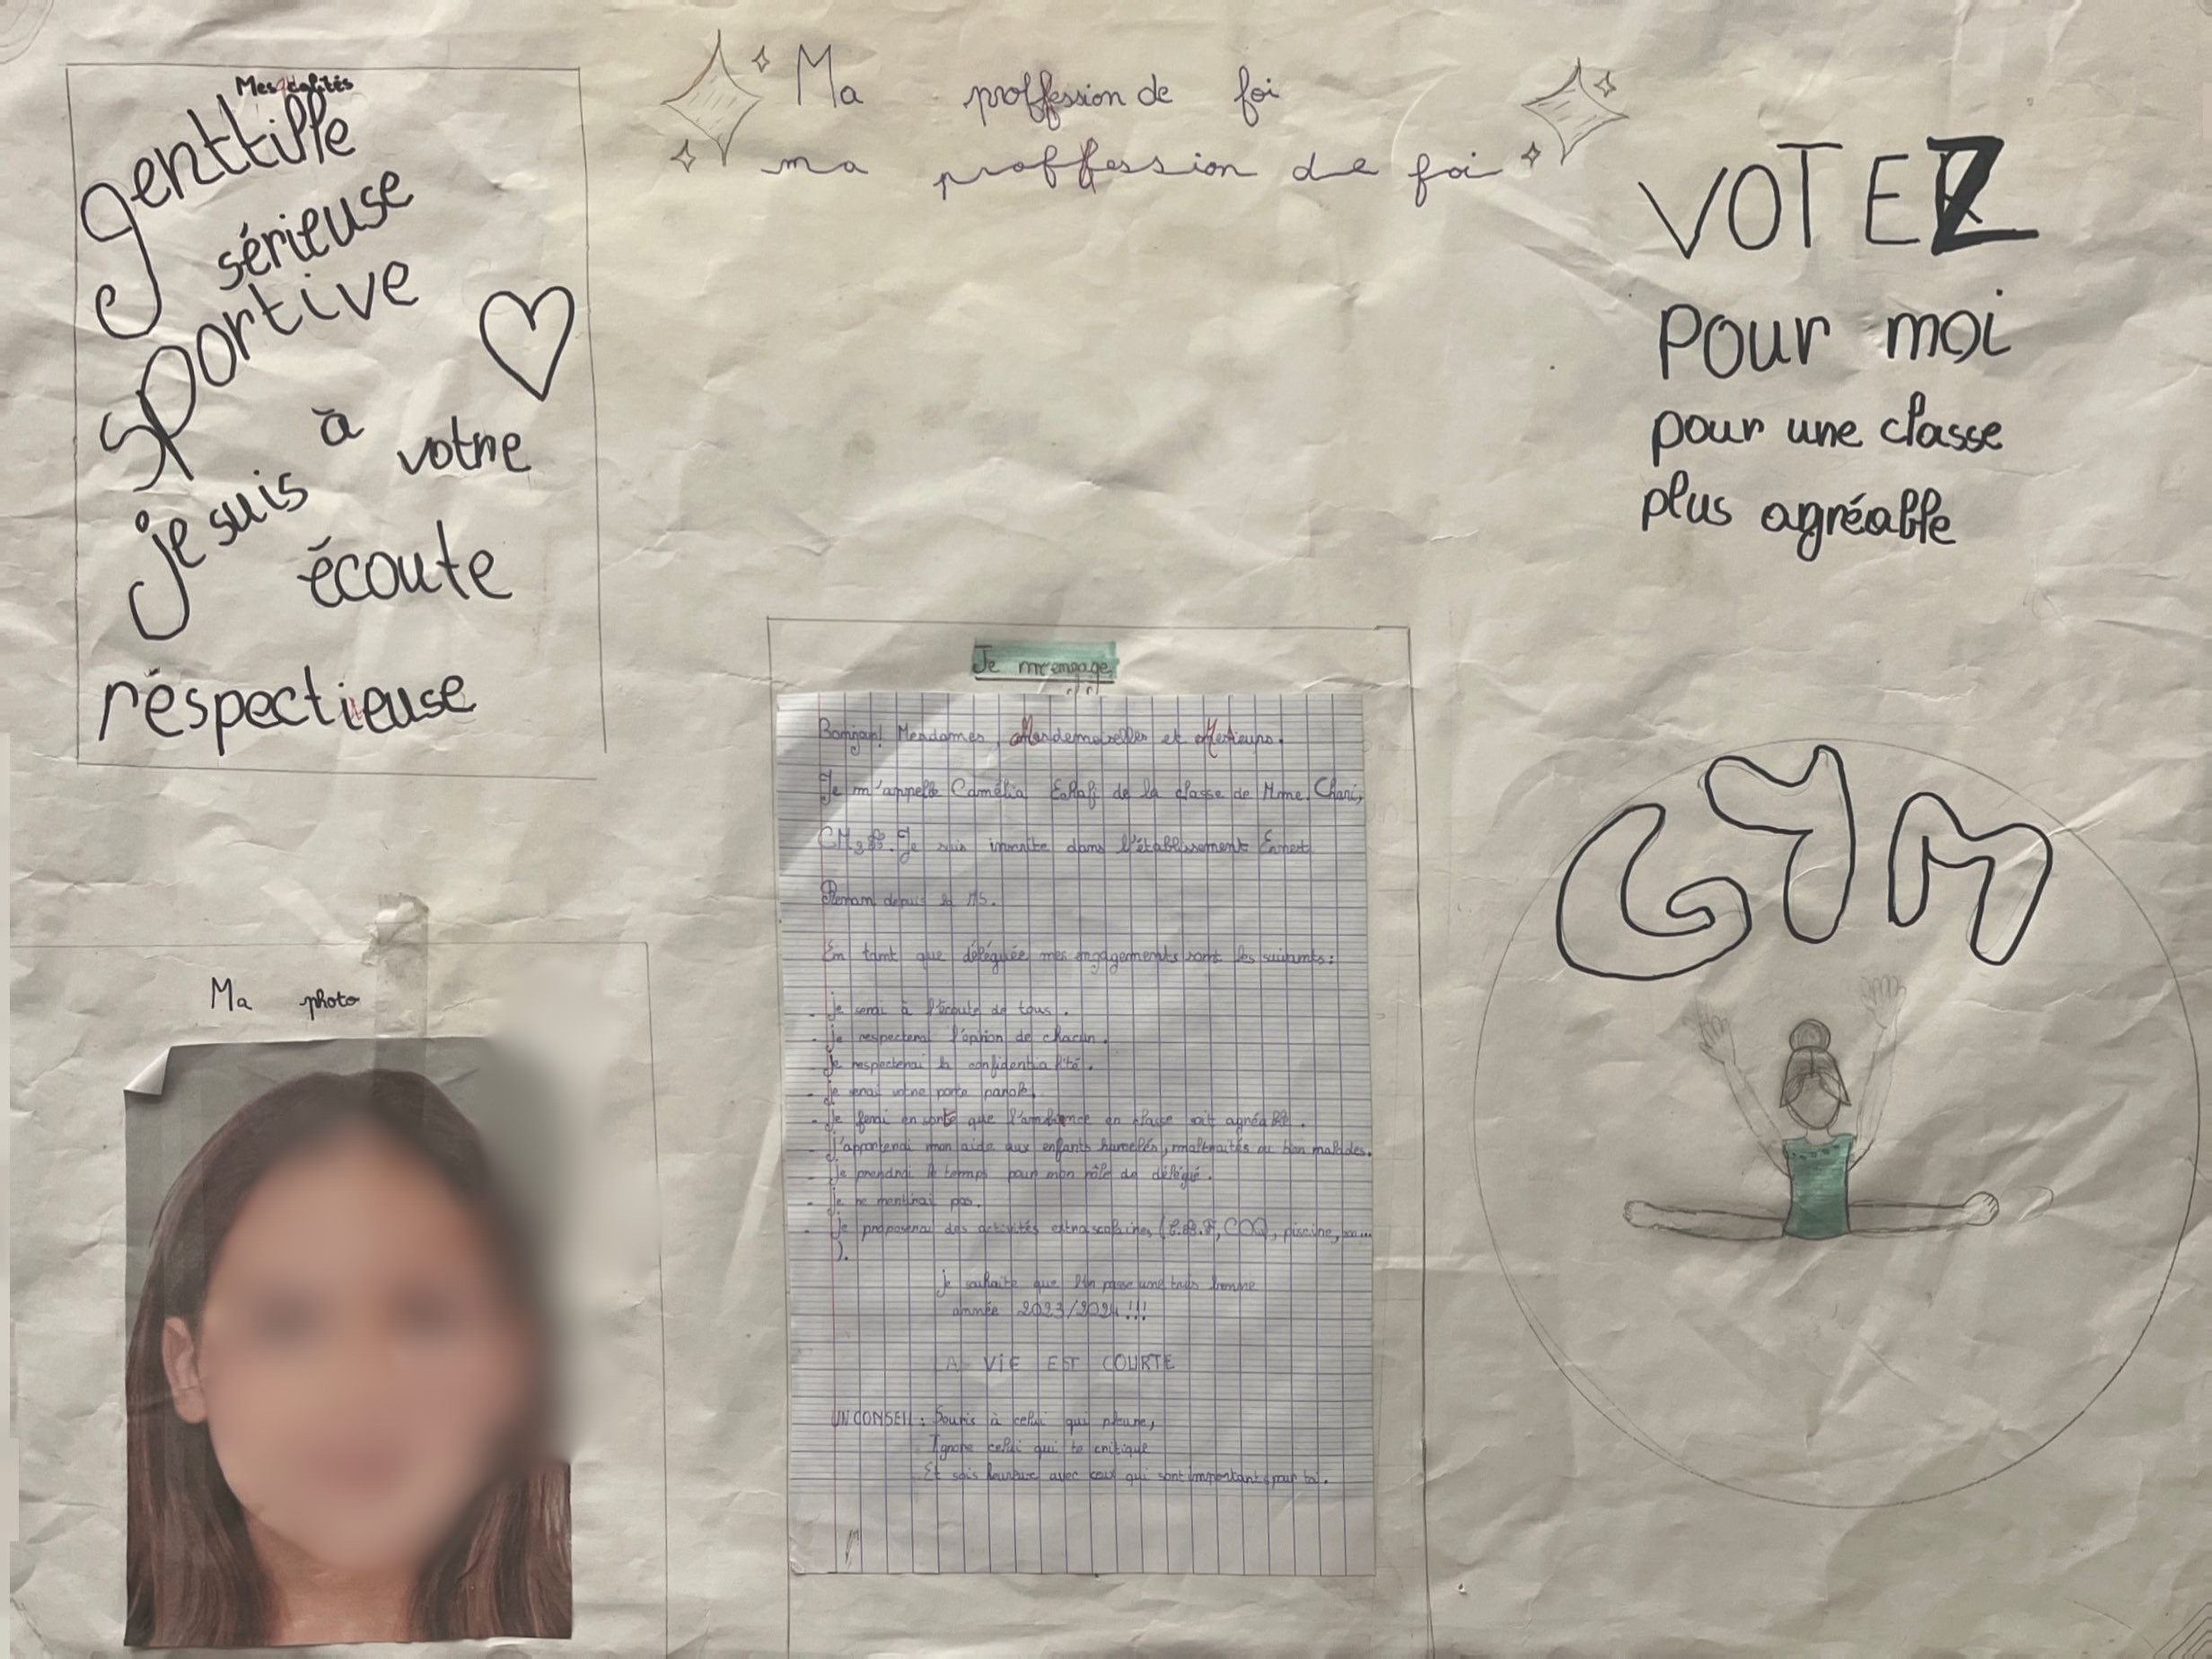 Mes qualités
genttille
sérieuse
sportive
je suis à votre
écoute
réspectieuse
Ma proffession de foi
ma proffession de foi
VOTEZ
pour moi
pour une classe
plus agréable
Ma photo
Je m'engage
Bonjour! Mesdames, Mesdemoiselles et Messieurs.
Je m'appelle Camélia de la classe de Mme. Chani,
Je suis inscrite dans l'établissement Ernest
Renan depuis la MS.
En tant que déléguée mes engagements sont les suivants:
- je serai à l'écoute de tous.
- je respecterai l'opinion de chacun.
- je respecterai la confidentialité.
- je serai votre porte parole.
- Je ferai en sorte que l'ambience en classe soit agréable.
- j'apporterai mon aide aux enfants harcelés, maltraités ou bien malades.
- je prendrai le temps pour mon rôle de délégué.
- je ne mentirai pas.
- je proposerai des activités extrascolaires (C.D.F, COQ, piscine,
).
je souhaite que l'on passe une très bonne
année 2023/2024 !!!
LA VIE EST COURTE
UN CONSEIL : Souris à celui qui pleure,
Ignore celui qui te critique
Et sois heureux avec ceux qui sont important pour toi.
GYM